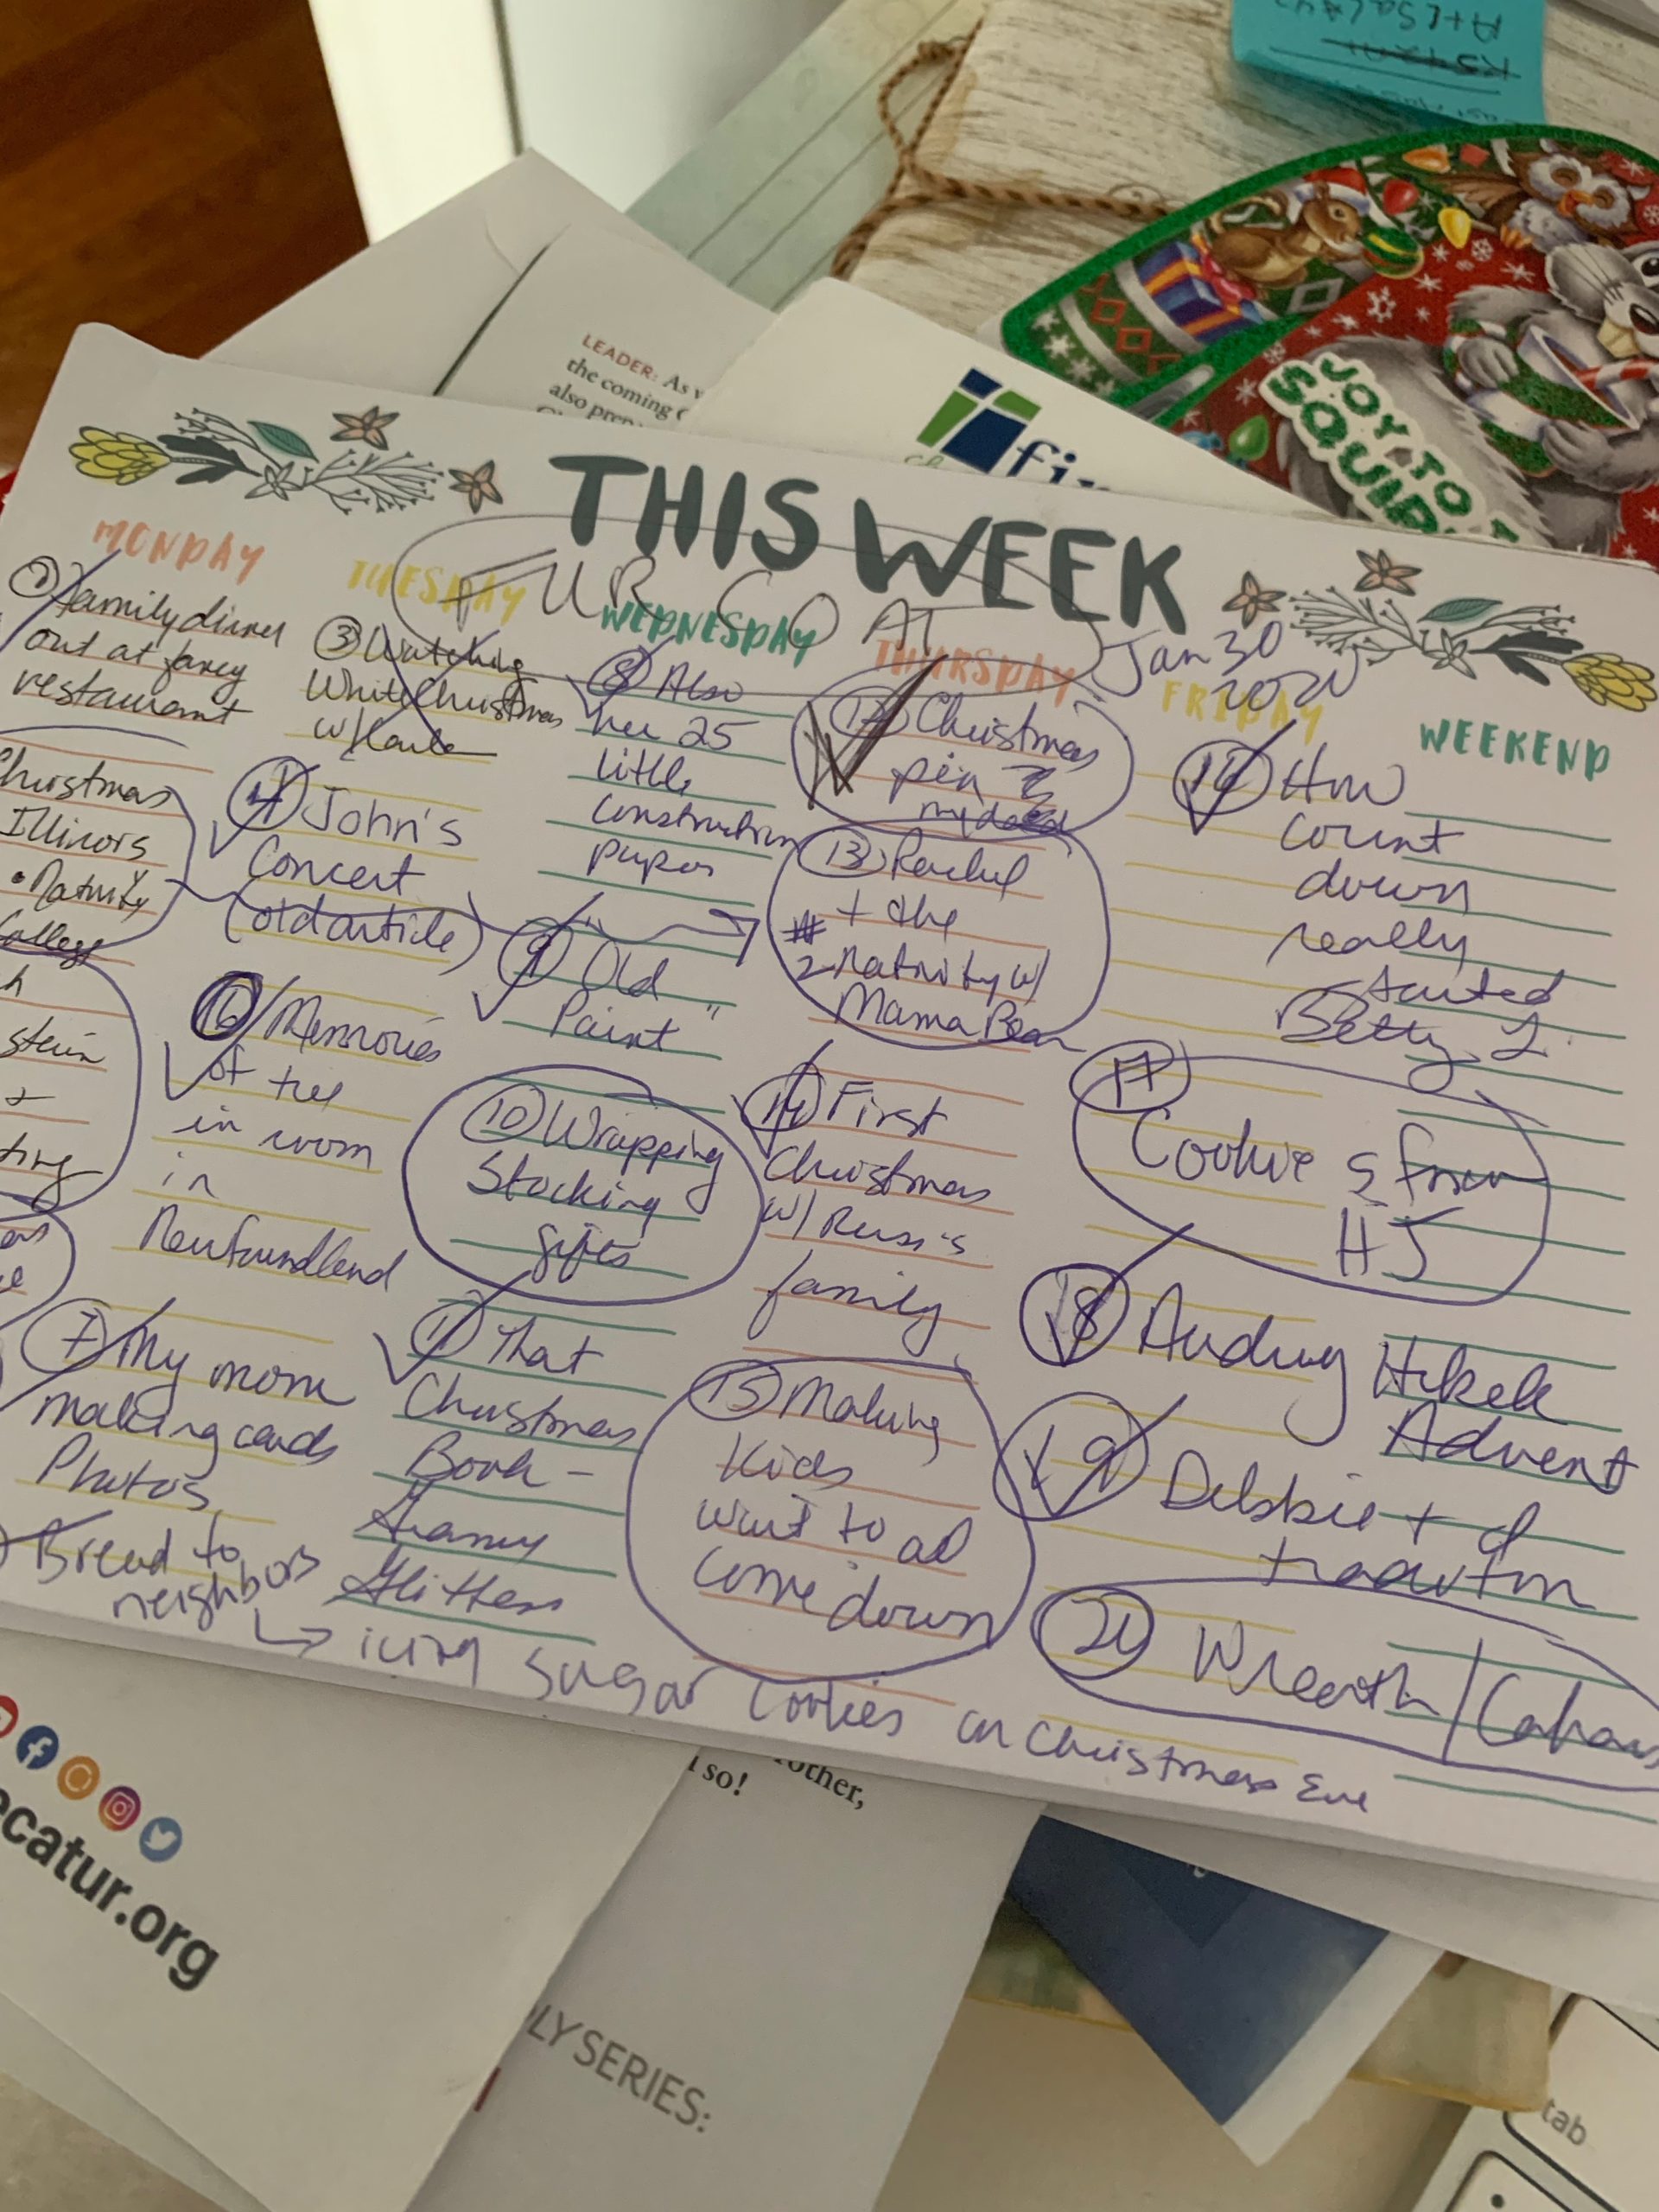 LEADER: As
the coming
also prep
JOY TO
SQUIR
THIS WEEK
FUR COAT
Jan 30
2020
MONDAY
② Family dinner
out at fancy
restaurant
Christmas
Illinois
• Nativity
College
h
stein
+
ting
⑦ My mom
making cards
Photos
Bread to
neighbors
↳ icing sugar cookies on Christmas Eve
TUESDAY
③ Watching
White Christmas
w/
④ John's
Concert
(old article)
⑯ Memories
of tree
in room
in
Newfoundland
WEDNESDAY
⑧ Also
her 25
little
construction
paper
⑨ "Old
Paint"
⑩ Wrapping
Stocking
gifts
⑪ That
Christmas
Book -
Granny
Glittens
THURSDAY
⑫ Christmas
pin
my dad
⑬ Rachel
+ the
# 2 Nativity w/
Mama Bear
⑭ First
Christmas
w/ Russ's
family
⑮ Making
Kids
wait to all
come down
FRIDAY
⑯ How
count
down
really
started
Betty L.
⑰
Cookies from
HJ
⑱ Audrey
Advent
⑲ Debbie + 
tradition
⑳ Wreath /
WEEKEND
ecatur.org
so!
other,
LY SERIES:
tab